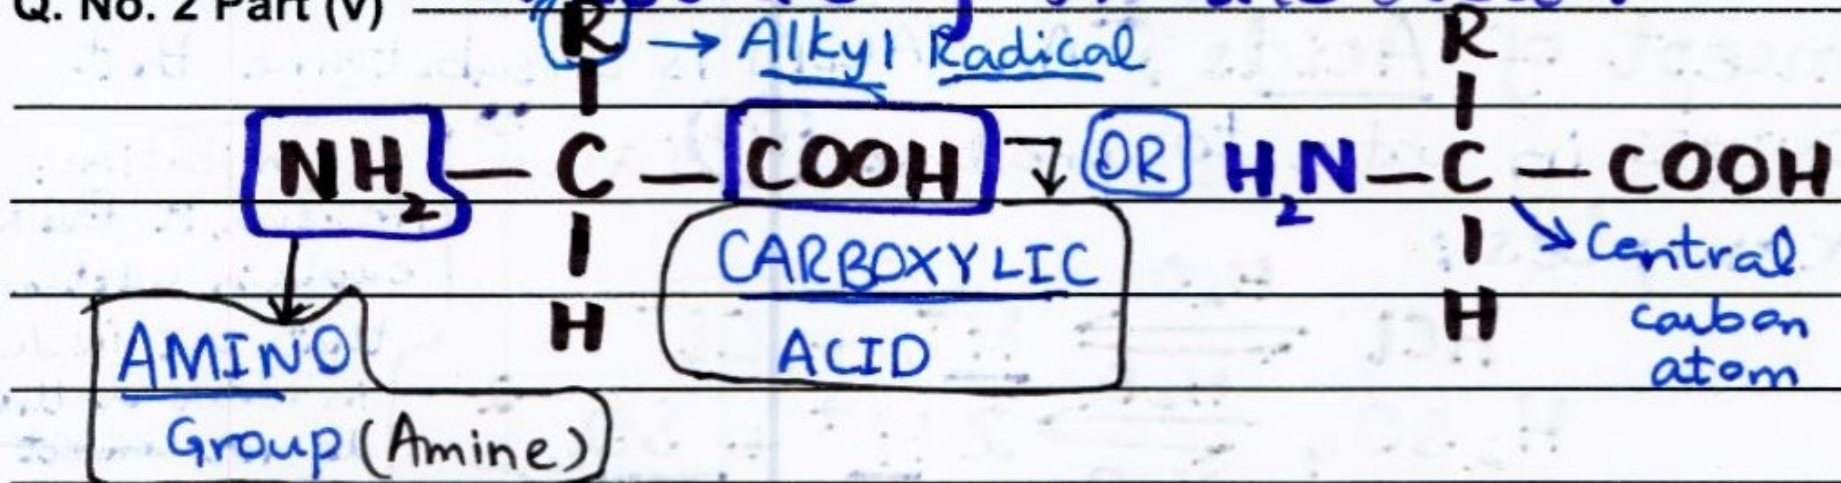 Q. No. 2 Part (v)
R → Alkyl Radical R
NH2 — C — COOH OR H2N — C — COOH
CARBOXYLIC Central
H H carbon
AMINO ACID atom
Group (Amine)